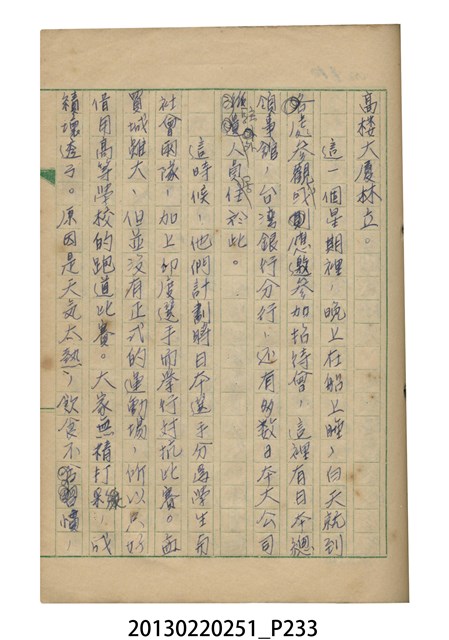 高楼大廈林立。
這一個星期裡，晚上在船上睡，白天就到
各處參觀或則應邀參加招待會，這裡有日本總
領事館，台湾銀行分行，还有多数日本大公司
人商住於此。
這時候，他們計劃將日本選手分爲學生兩
社會兩隊，加上印度選手而舉行对抗比賽。孟
買城雖大，但並沒有正式的運動場，所以只好
借用高等學校的跑道比賽。大家無精打彩，成
績壞透了。原因是天気太熱，飲食不習慣，
20130220251_P233